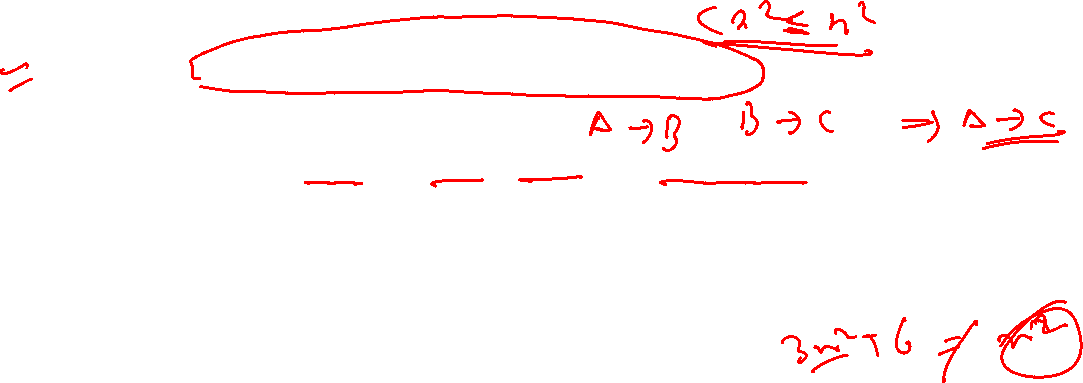 C n² ≤ n²
A → B B → C ⇒ A → C
3n² + 6 ≠ n²